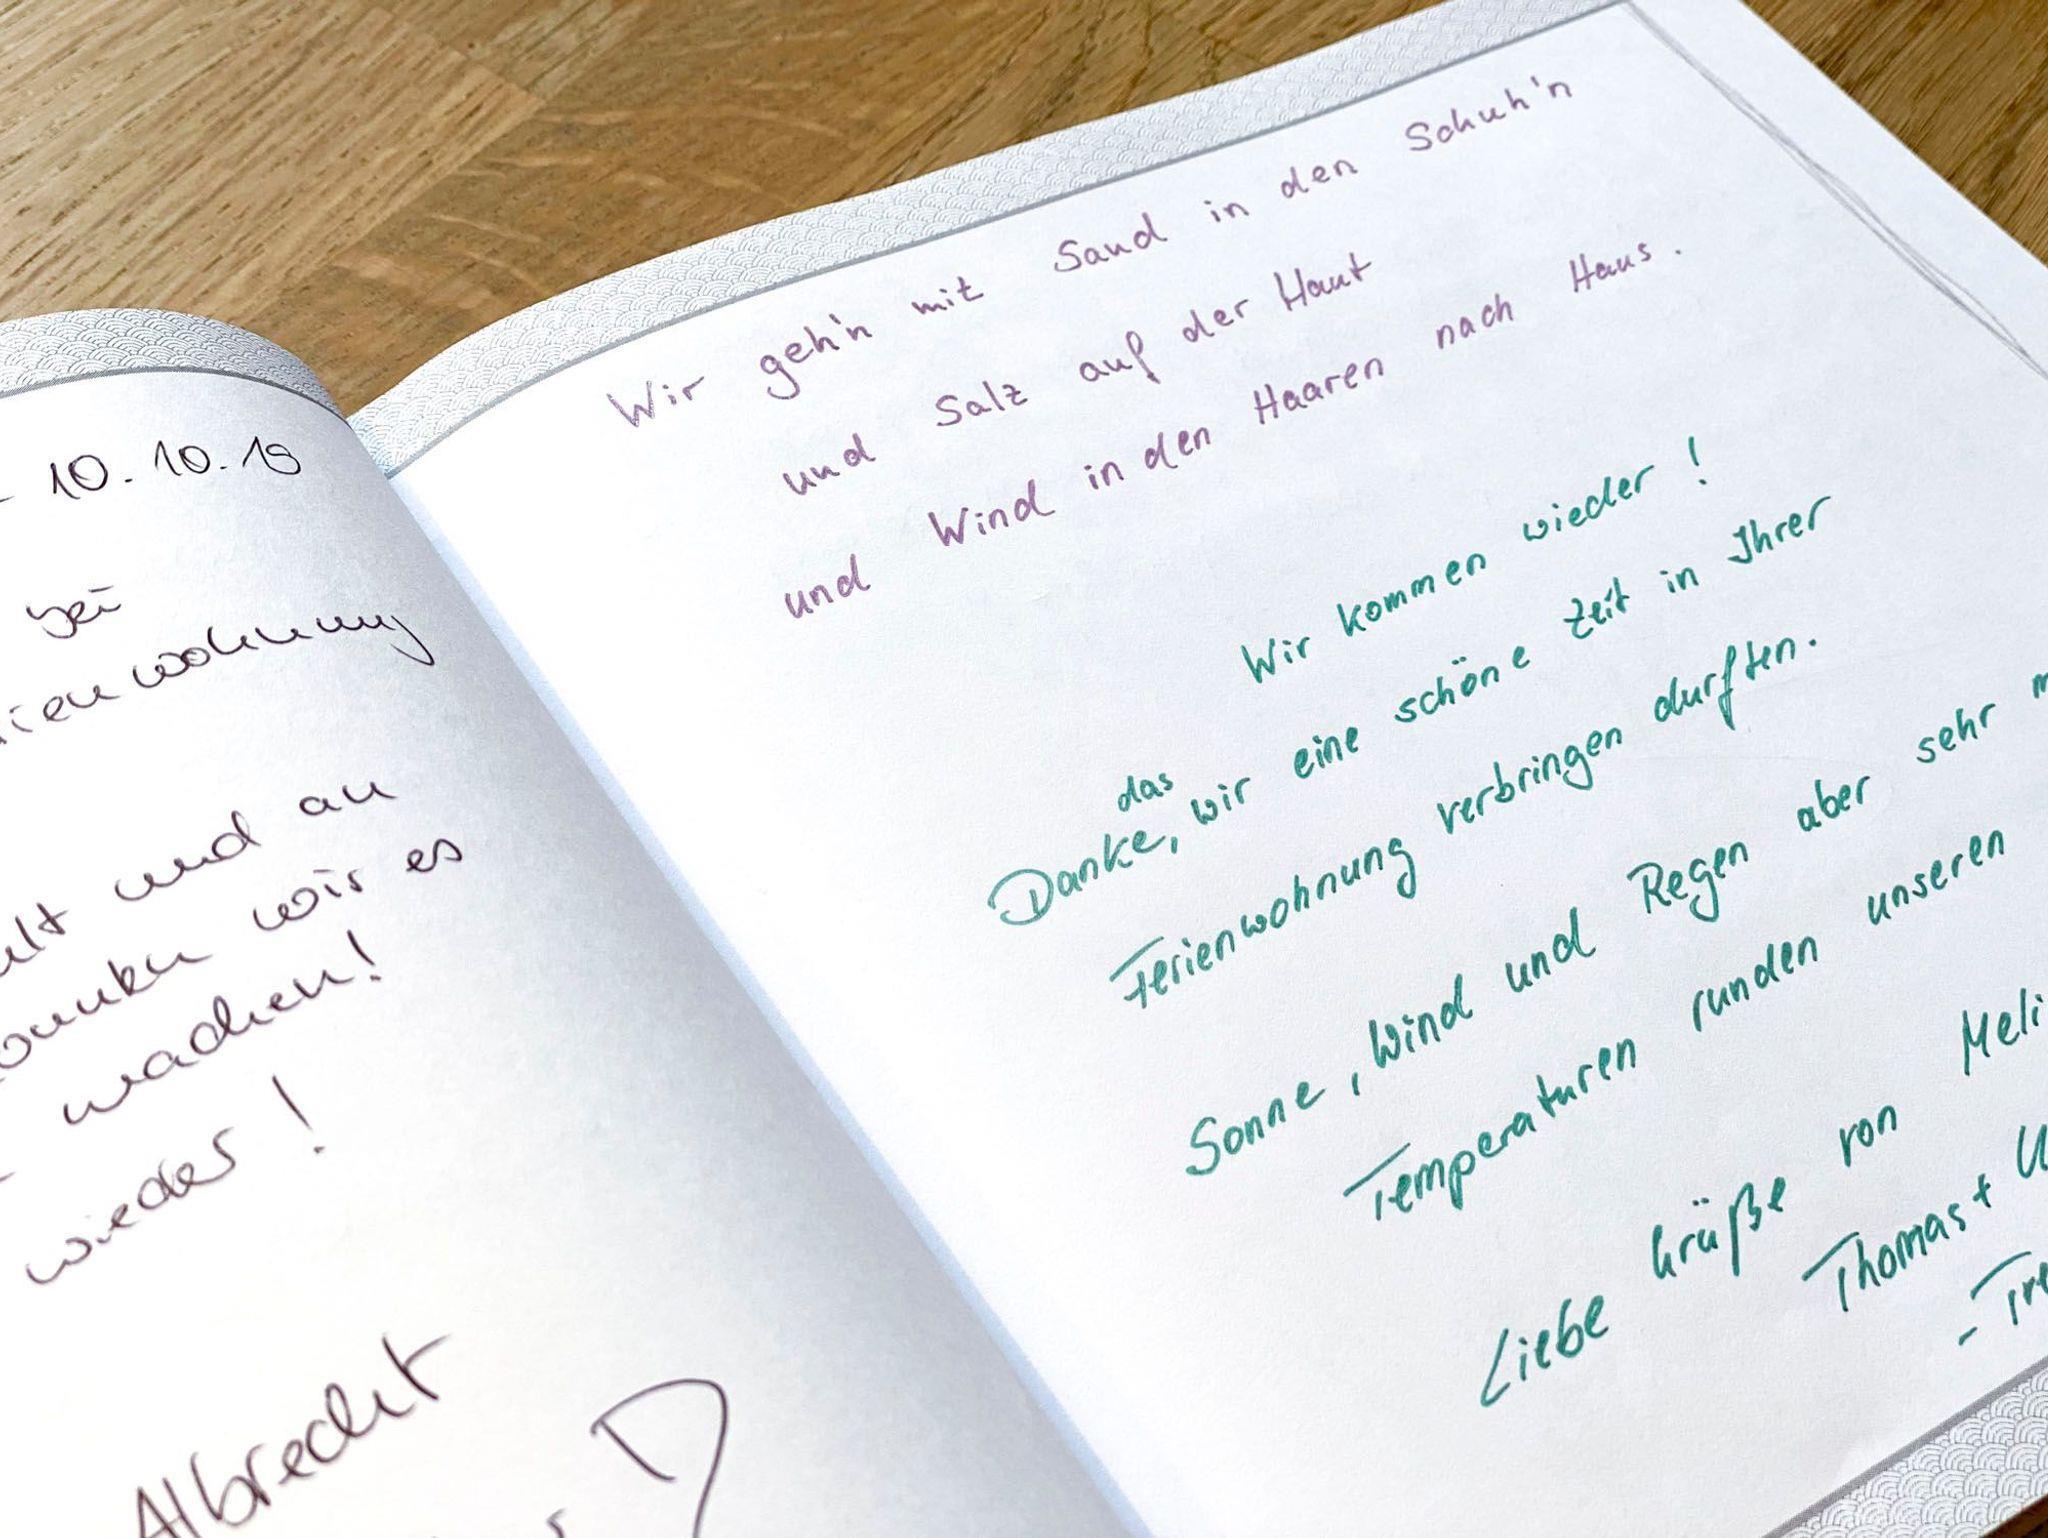 10.10.19
bei
ienwohnung
und an
wir es
machen!
wieder!
Albrecht
Wir geh'n mit Sand in den Schuh'n
und Salz auf der Haut
und Wind in den Haaren nach Haus.
Wir kommen wieder!
das
Danke, wir eine schöne Zeit in Ihrer
Ferienwohnung verbringen durften.
Sonne, Wind und Regen aber sehr m
Temperaturen runden unseren
Liebe Grüße von Meli
Thomas + U
- Tre